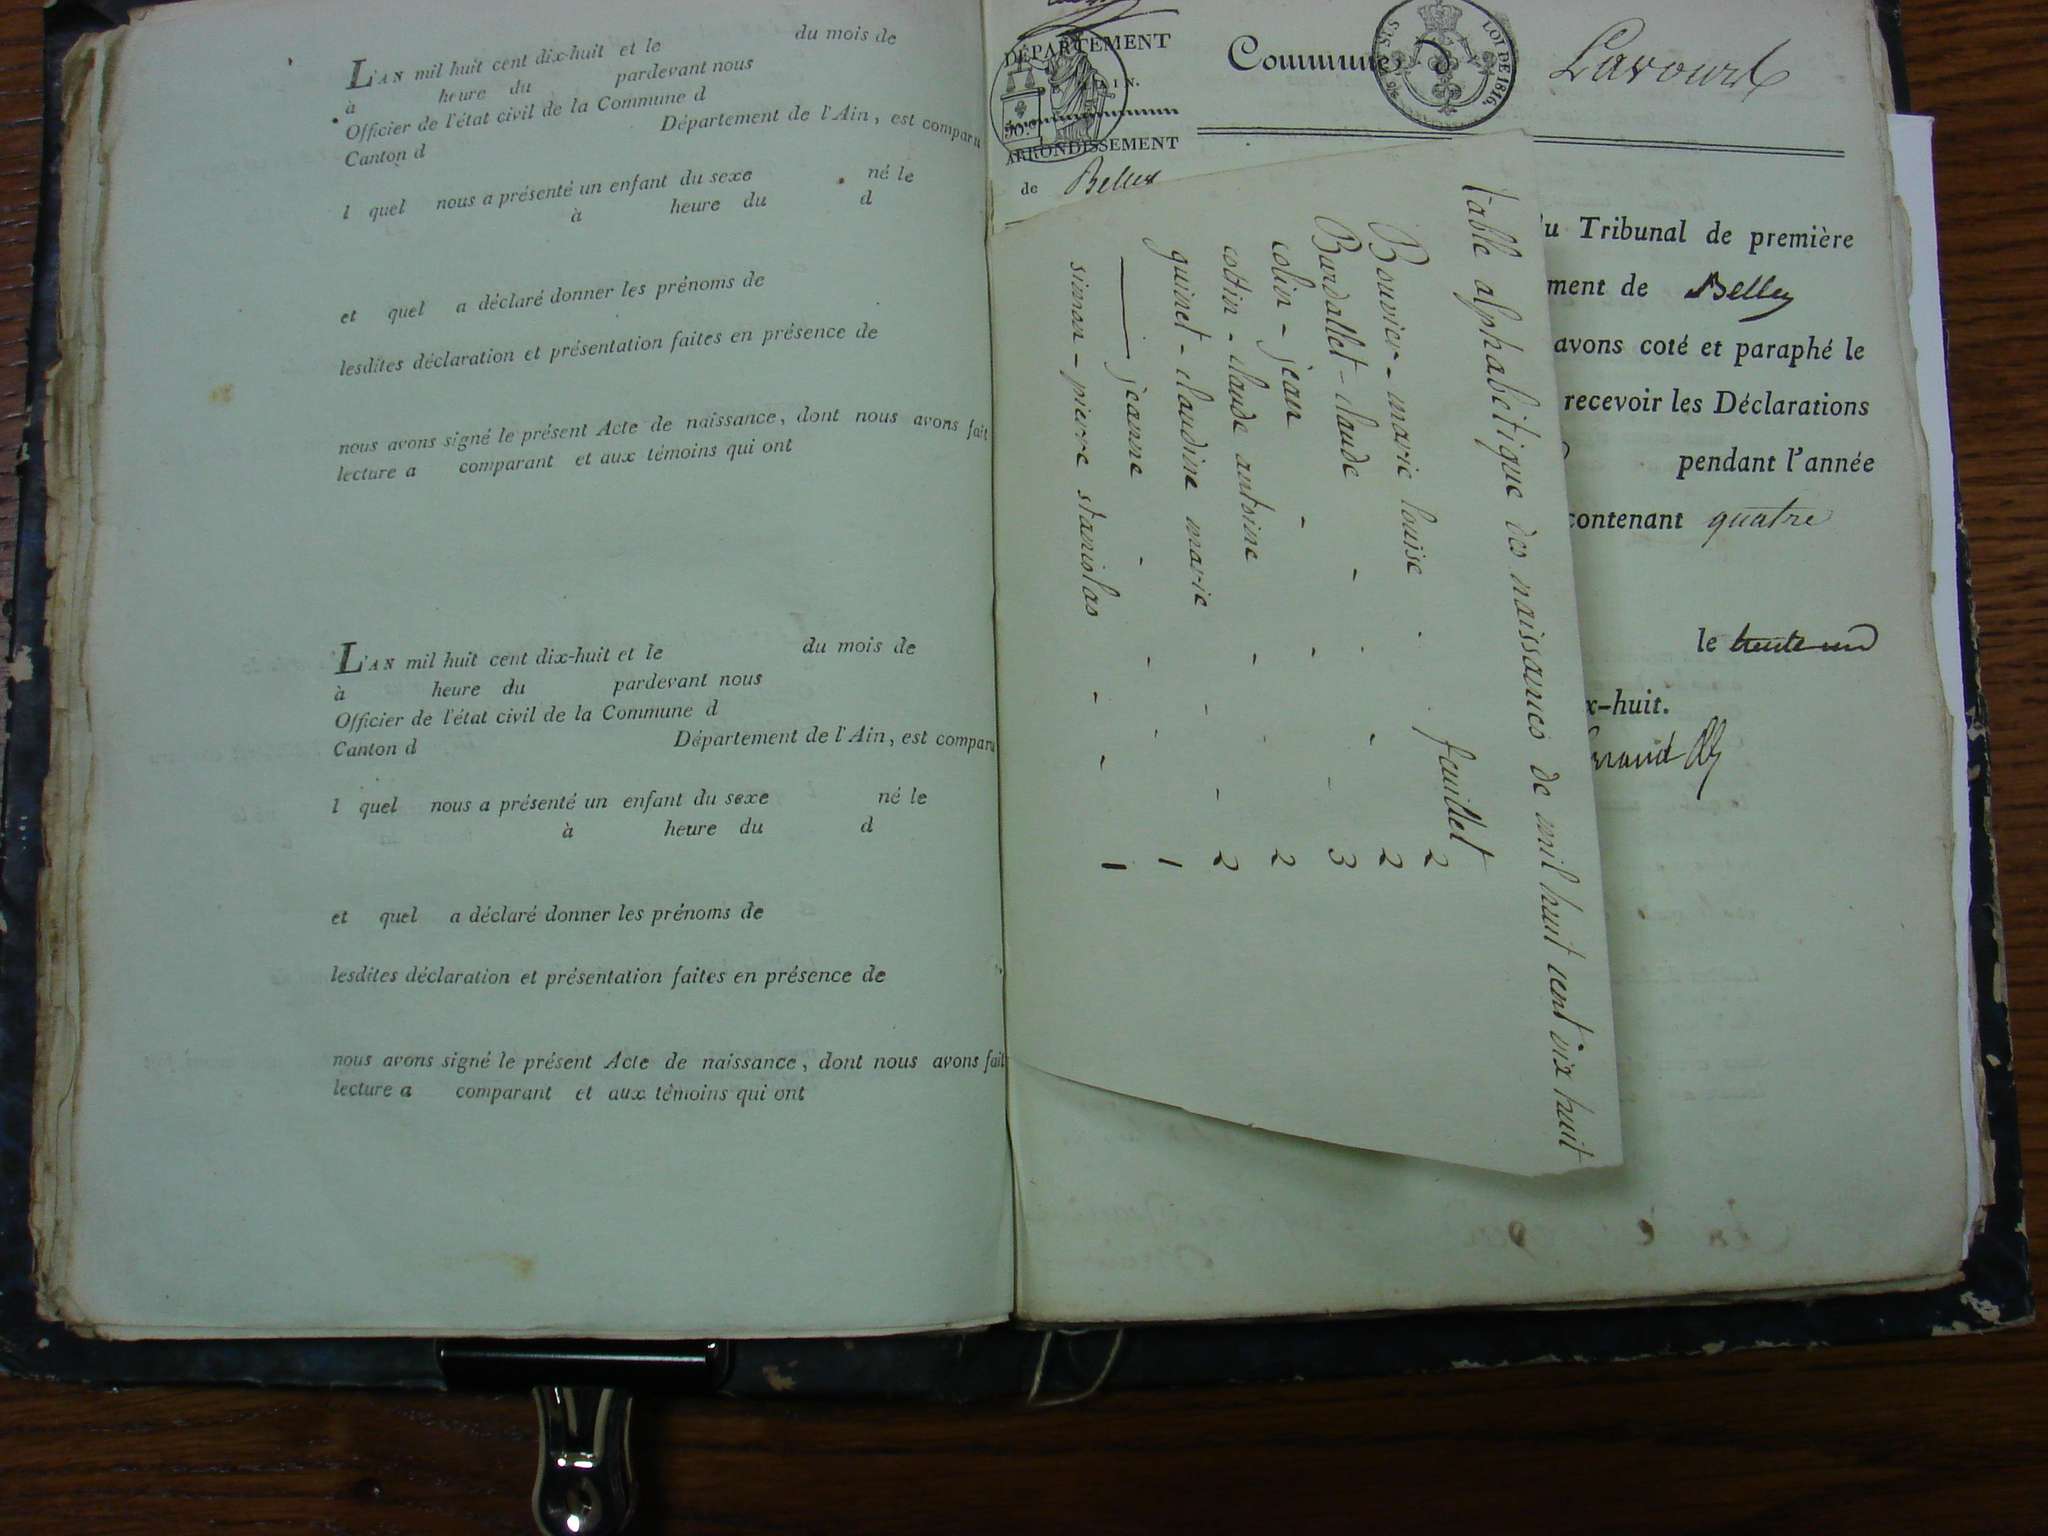 L'AN mil huit cent dix-huit et le du mois de
à heure du pardevant nous
Officier de l'état civil de la Commune d
Canton d Département de l'Ain, est comparu
l quel nous a présenté un enfant du sexe né le
à heure du d
et quel a déclaré donner les prénoms de
lesdites déclaration et présentation faites en présence de
nous avons signé le présent Acte de naissance, dont nous avons fait
lecture a comparant et aux témoins qui ont
L'AN mil huit cent dix-huit et le du mois de
à heure du pardevant nous
Officier de l'état civil de la Commune d
Canton d Département de l'Ain, est comparu
l quel nous a présenté un enfant du sexe né le
à heure du d
et quel a déclaré donner les prénoms de
lesdites déclaration et présentation faites en présence de
nous avons signé le présent Acte de naissance, dont nous avons fait
lecture a comparant et aux témoins qui ont
DÉPARTEMENT
AIN.
ARRONDISSEMENT
de Belley
Commune d Lavours
LOI DE 1816.
du Tribunal de première
ment de Belley
avons coté et paraphé le
recevoir les Déclarations
pendant l'année
contenant quatre
le trente un
x-huit.
Table alphabétique des naissances de mil huit cent dix huit
feuillet
Bouvier - marie louise 2
Burdallet - claude 2
colin - jean 3
cottin - claude antoine 2
quinet - claudine marie 2
—— jeanne 1
simon - pierre stanislas 1